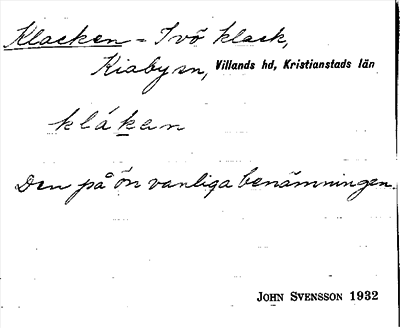 Klacken = Ivö klack,
Kiaby sn, Villands hd, Kristianstads län
klákan
Den på ön vanliga benämningen.
JOHN SVENSSON 1932